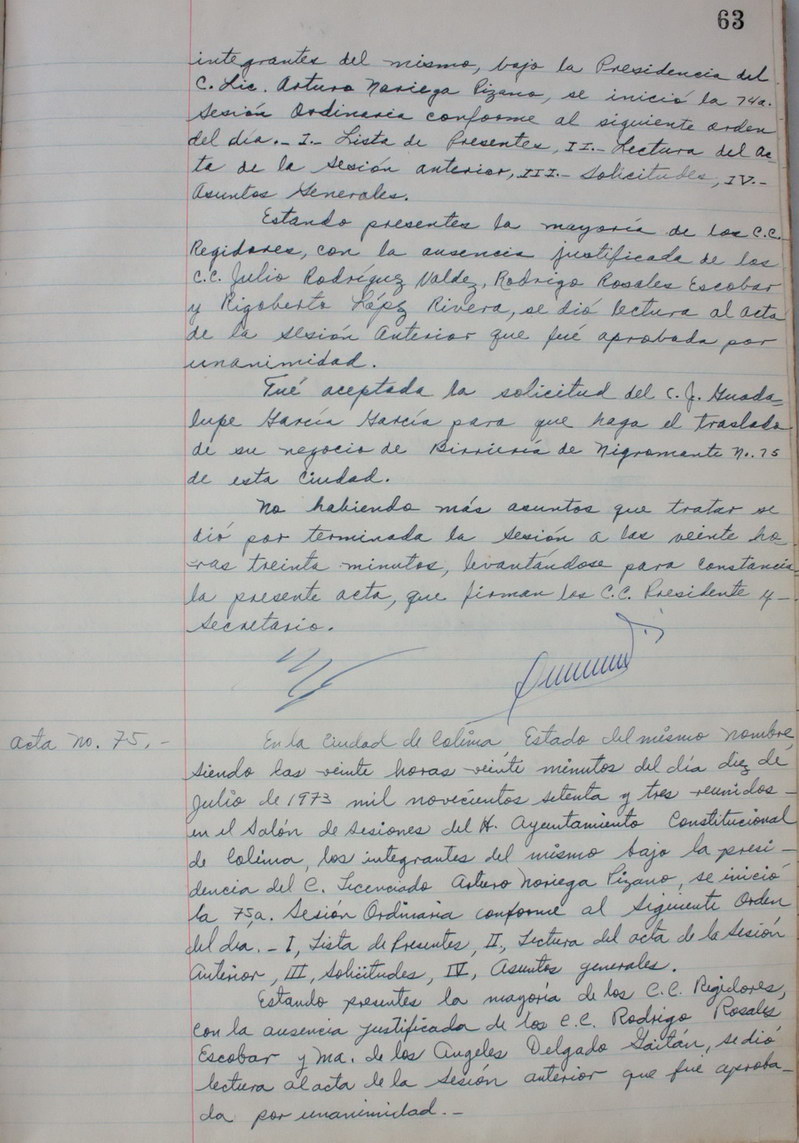 63
integrantes del mismo, bajo la Presidencia del
C. Lic. Arturo Noriega Pizano, se inició la 74a.
Sesión Ordinaria conforme al siguiente orden
del día.- I.- Lista de Presentes, II.- Lectura del Ac
ta de la Sesión anterior, III.- Solicitudes, IV.-
Asuntos Generales.
Estando presentes la mayoría de los C.C.
Regidores, con la ausencia justificada de los
C.C. Julio Rodríguez Valdez, Rodrigo Rosales Escobar
y Rigoberto López Rivera, se dió lectura al acta
de la Sesión Anterior que fué aprobada por
unanimidad.
Fué aceptada la solicitud del C. J. Guada-
lupe García García para que haga el traslado
de su negocio de Birriería de Nigromante No. 75
de esta Ciudad.
No habiendo más asuntos que tratar se
dió por terminada la Sesión a las veinte ho-
ras treinta minutos, levantándose para constancia
la presente acta, que firman los C.C. Presidente y-
Secretario.
Acta No. 75.-
En la Ciudad de Colima Estado del mismo nombre
siendo las veinte horas veinte minutos del día diez de
Julio de 1973 mil novecientos setenta y tres reunidos-
en el Salón de Sesiones del H. Ayuntamiento Constitucional
de Colima, los integrantes del mismo bajo la presi-
dencia del C. Licenciado Arturo Noriega Pizano, se inició
la 75a. Sesión Ordinaria conforme al Siguiente Orden
del día.- I, Lista de Presentes, II, Lectura del acta de la Sesión
Anterior, III, Solicitudes, IV, Asuntos generales.
Estando presentes la mayoría de los C.C. Regidores,
con la ausencia justificada de los C.C. Rodrigo Rosales
Escobar y Ma. de los Angeles Delgado Gaitán, se dió
lectura al acta de la Sesión anterior que fué aproba-
da por unanimidad.-